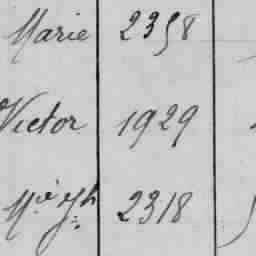 Marie 2358
Victor 1929
Mie Jh 2318